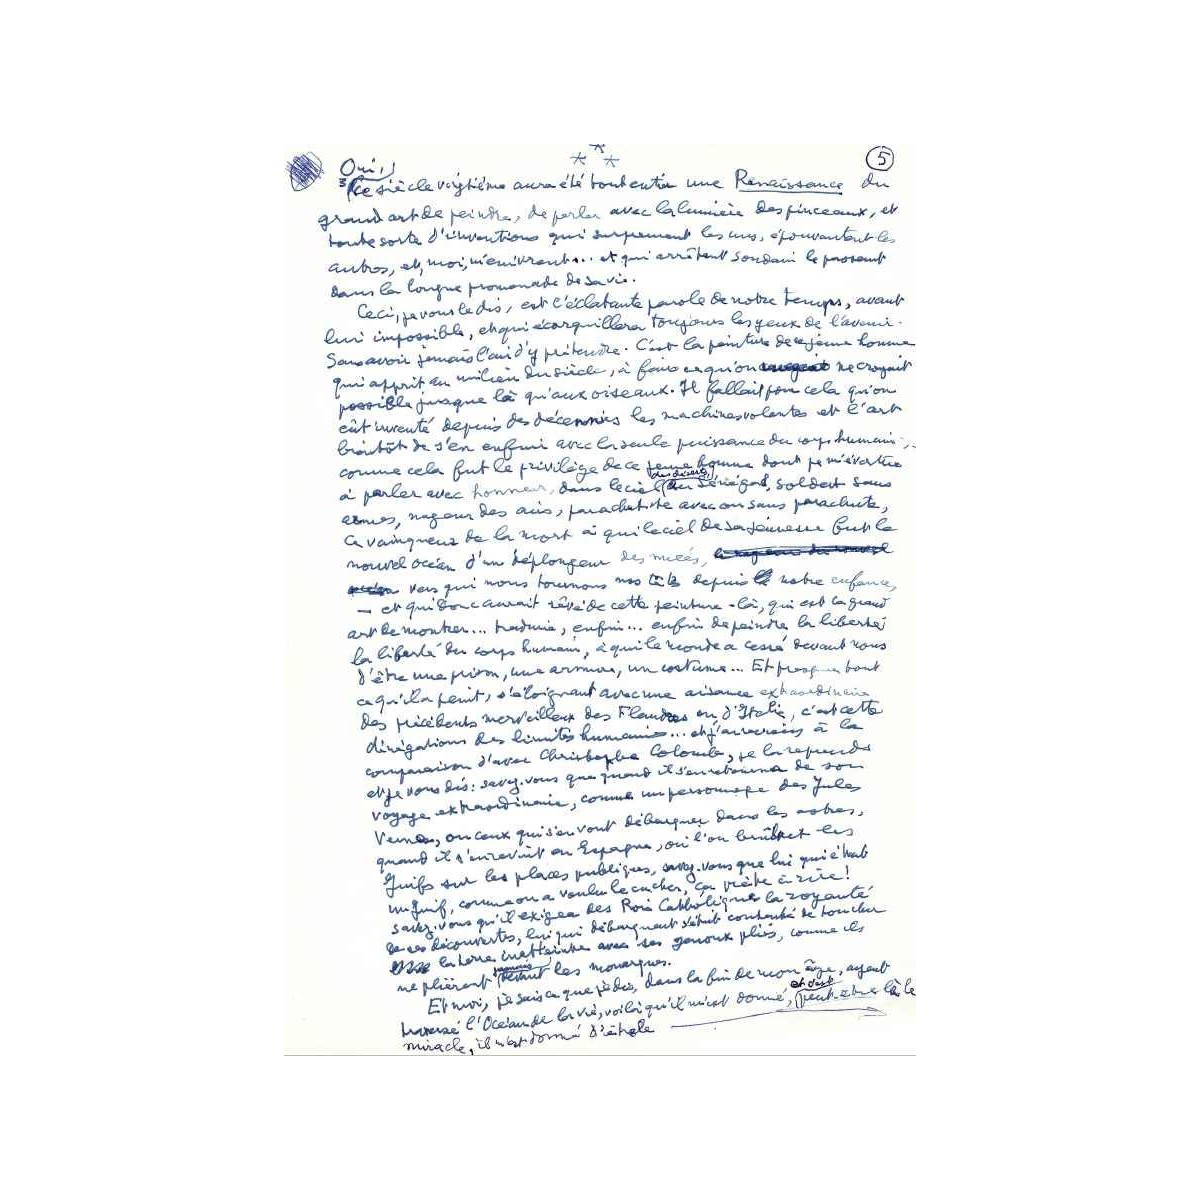 * * *
5
Oui,
Ce siècle vingtième aura été tout entier une Renaissance du
grand art de peindre, de parler avec la lumière des pinceaux, et
toute sorte d'inventions qui surprennent les uns, épouvantent les
autres, et, moi, m'enivrent... et qui arrêtent soudain le passant
dans la longue promenade de sa vie.
Ceci, je vous le dis, est l'éclatante parole de notre temps, avant
lui impossible, et qui écarquillera toujours les yeux de l'avenir.
Sans avoir jamais l'air d'y prétendre. C'est la peinture de ce jeune homme
qui apprit au milieu du siècle, à faire ce qu'on ne croyait
possible jusque là qu'aux oiseaux. Il fallait pour cela qu'on
eût inventé depuis des décennies les machines volantes et l'art
bientôt de s'en enfuir avec la seule puissance du corps humain,
comme cela fut le privilège de ce jeune homme dont je m'évertue
à parler avec honneur, dans le ciel du Sénégal, soldat sans
armes, nageur des airs, parachutiste avec ou sans parachute,
ce vainqueur de la mort à qui le ciel de sa jeunesse fut le
nouvel océan d'un déplongeur des nuées,
vers qui nous tournons nos têtes depuis notre enfance,
— et qui donc aurait rêvé de cette peinture-là, qui est le grand
art de montrer... traduire, enfin... enfin de peindre la liberté
la liberté du corps humain, à qui le monde a cessé devant nous
d'être une prison, une armure, un costume... Et presque tout
ce qu'il a peint, s'éloignant avec une aisance extraordinaire
des précédents merveilleux des Flandres ou d'Italie, c'est cette
dénégations des limites humaines... et j'en reviens à la
comparaison d'avec Christophe Colomb, je la reprends
et je vous dis: savez-vous que quand il s'en retourna de son
voyage extraordinaire, comme un personnage des Jules
Verne, ou ceux qui s'en vont débarquer dans les astres,
quand il s'en revint en Espagne, où l'on brûlait les
Juifs sur les places publiques, savez-vous que lui qui était
un Juif, comme on a voulu le cacher, ça prête à rire!
savez-vous qu'il exigea des Rois Catholiques la royauté
de ses découvertes, lui qui débarquant s'était contenté de toucher
la terre inatteinte avec ses genoux pliés, comme ils
ne plièrent jamais devant les monarques.
Et moi, je sais ce que je dis, dans la fin de mon âge, ayant
traversé l'Océan de la vie, voilà qu'il m'est donné, et c'est peut-être là le
miracle, il m'est donné d'être le